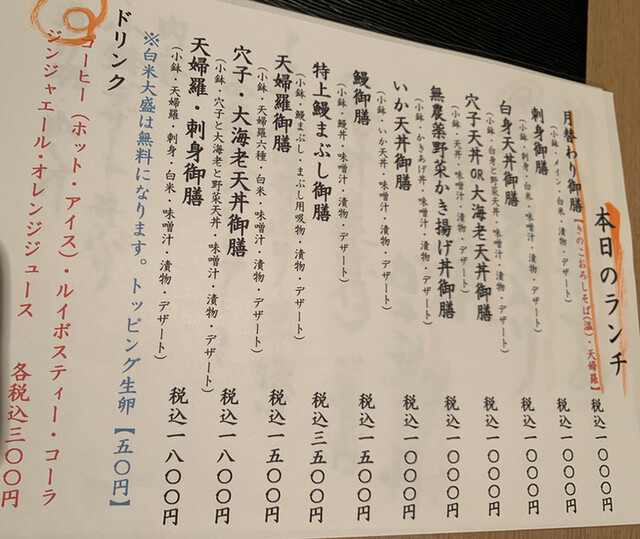 本日のランチ
月替わり御膳【きのこおろしそば(温)・天婦羅】 税込一〇〇〇円
(小鉢・メイン・白米・漬物・デザート)
刺身御膳 税込一〇〇〇円
(小鉢・刺身・白米・味噌汁・漬物・デザート)
白身天丼御膳 税込一〇〇〇円
(小鉢・白身と野菜天丼・味噌汁・漬物・デザート)
穴子天丼OR大海老天丼御膳 税込一〇〇〇円
(小鉢・天丼・味噌汁・漬物・デザート)
無農薬野菜かき揚げ丼御膳 税込一〇〇〇円
(小鉢・かきあげ丼・味噌汁・漬物・デザート)
いか天丼御膳 税込一〇〇〇円
(小鉢・いか天丼・味噌汁・漬物・デザート)
鰻御膳 税込一五〇〇円
(小鉢・鰻丼・味噌汁・漬物・デザート)
特上鰻まぶし御膳 税込三五〇〇円
(小鉢・鰻まぶし・まぶし用吸物・漬物・デザート)
天婦羅御膳 税込一五〇〇円
(小鉢・天婦羅六種・白米・味噌汁・漬物・デザート)
穴子・大海老天丼御膳 税込一八〇〇円
(小鉢・穴子と大海老と野菜天丼・味噌汁・漬物・デザート)
天婦羅・刺身御膳 税込一八〇〇円
(小鉢・天婦羅・刺身・白米・味噌汁・漬物・デザート)
※白米大盛は無料になります。トッピング生卵【五〇円】
ドリンク
コーヒー(ホット・アイス)・ルイボスティー・コーラ
ジンジャエール・オレンジジュース 各税込三〇〇円